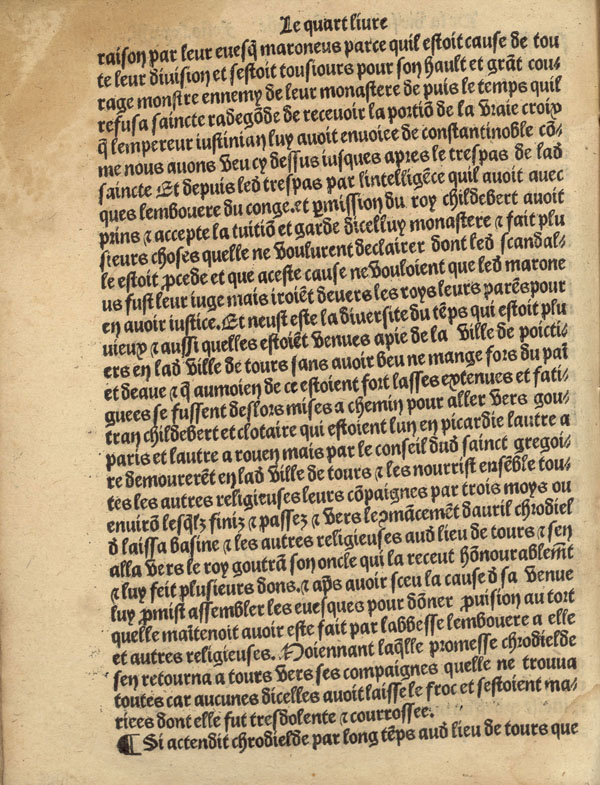 Le quart liure
raison par leur euesq̃ maroneus parce quil estoit cause de tou
te leur diuision et sestoit tousiours pour son hault et grãt cou⸗
rage monstre ennemy de leur monastere de puis le temps quil
refusa saincte radegõde de receuoir la portiõ de la vraie croix
q̃ lempereur iustinian luy auoit enuoiee de constantinoble cõ⸗
me nous auons veu cy dessus iusques apres le trespas de lad
saincte Et depuis led trespas par lintelligẽce quil auoit auec
ques lembouere du conge. et ꝑmission du roy childebert auoit
prins ⁊ accepte la tuitiõ et garde dicelluy monastere ⁊ fait plu
sieurs choses quelle ne voulurent declairer dont led scandal⸗
le estoit ꝓcede et que aceste cause ne vouloient que led marone
us fust leur iuge mais iroiẽt deuers les roys leurs parẽs pour
en auoir iustice. Et neust este la diuersite du tẽps qui estoit plu
uieux ⁊ aussi quelles estoiẽt venues apie de la ville de poicti⸗
ers en lad ville de tours sans auoir beu ne mange fors du pai
et deaue ⁊ q̃ aumoien de ce estoient fort lasses extenues et fati⸗
guees se fussent deslors mises a chemin pour aller vers gou⸗
tran childebert et clotaire qui estoient lun en picardie lautre a
paris et lautre a rouen mais par le conseil dud sainct gregoi⸗
re demourerẽt en lad ville de tours ⁊ les nourrist ensẽble tou⸗
tes les autres religieuses leurs cõpaignes par trois moys ou
enuirõ lesq̃lz finiz ⁊ passez ⁊ vers le cõmãcemẽt dauril chrodiel
d laissa basine ⁊ les autres religieuses aud lieu de tours ⁊ sen
alla vers le roy goutrã son oncle qui la receut hõnourablemt̃
⁊ luy feit plusieurs dons. ⁊ aps̃ auoir sceu la cause d sa venue
luy ꝓmist assembler les euesques pour dõner ꝓuision au tort
quelle maĩtenoit auoir este fait par labbesse lembouere a elle
et autres religieuses. Moiennant laq̃lle promesse chrodielde
sen retourna a tours vers ses compaignes quelle ne trouua
toutes car aucunes dicelles auoit laisse le froc et sestoient ma⸗
riees dont elle fut tresdolente ⁊ courrossee.
¶ Si actendit chrodielde par long tẽps aud lieu de tours que